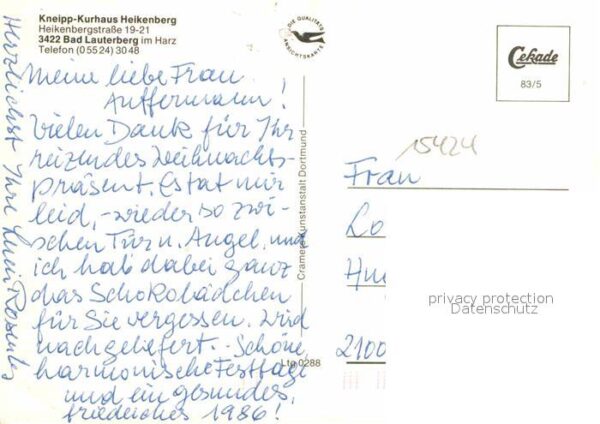 Kneipp-Kurhaus Heikenberg
Heikenbergstraße 19-21
3422 Bad Lauterberg im Harz
Telefon (0 55 24) 30 48
Meine liebe Frau
Auffermann!
Vielen Dank für Ihr
reizendes Weihnachts-
präsent. Es tat mir
leid, - wieder so zwi-
schen Tür u. Angel, und
ich hab dabei ganz
das Schokolädchen
für Sie vergessen. Wird
nachgeliefert. - Schöne,
harmonische Festtage
und ein gesundes,
friedliches 1986!
Herzlichst Ihre
DIE QUALITÄTS
ANSICHTSKARTE
Cramers Kunstanstalt Dortmund
Ltg 0288
Cekade
83/5
15424
Frau
Lo
2100
privacy protection
Datenschutz